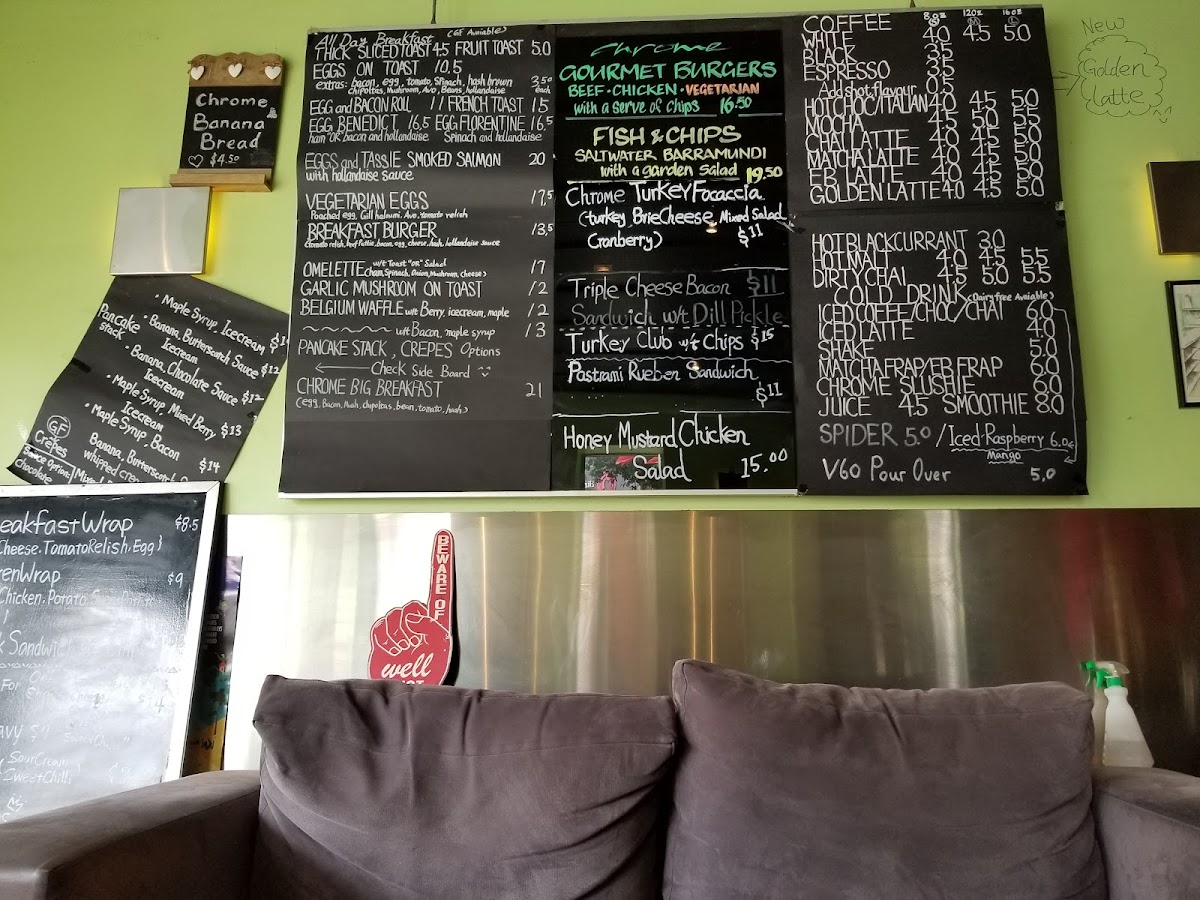 Chrome
Banana
Bread
$4.50
Maple Syrup, Icecream
Pancake stack
Banana, Butterscotch Sauce $12
Icecream
Banana, Chocolate Sauce $12
Icecream
Maple Syrup, Mixed Berry $13
Icecream
Maple Syrup, Bacon $14
Banana, Butterscotch
whipped cream
GF
Crêpes
Sauce Option:
chocolate
eakfast Wrap $8.5
Cheese, Tomato Relish, Egg}
enWrap $9
Chicken, Potato,
Sandwich
For
Sour Cream
Sweet Chilli
All Day Breakfast (GF Avaiable)
THICK SLICED TOAST 4.5 FRUIT TOAST 5.0
EGGS ON TOAST 10.5
extras: bacon, egg, tomato, Spinach, hash brown 3.50
chipottas, Mushroom, Avo, Beans, hollandaise each
EGG and BACON ROLL 11 FRENCH TOAST 15
EGG BENEDICT 16.5 EGG FLORENTINE 16.5
ham "OR" bacon and hollandaise Spinach and hollandaise
EGGS and TASSIE SMOKED SALMON 20
with hollandaise sauce
VEGETARIAN EGGS 17.5
Poached egg, Gill haloumi, Avo, tomato relish
BREAKFAST BURGER 13.5
(tomato relish, beef Pattie, bacon, egg, cheese, hash, hollandaise sauce
OMELETTE w/t Toast "OR" Salad 17
(ham, Spinach, Onion, Mushroom, cheese)
GARLIC MUSHROOM ON TOAST 12
BELGIUM WAFFLE w/t Berry, icecream, maple 12
w/t Bacon, maple syrup 13
PANCAKE STACK, CREPES Options
Check Side Board
CHROME BIG BREAKFAST 21
(egg, Bacon, Mush, chipolatas, bean, tomato, hash)
chrome
GOURMET BURGERS
BEEF · CHICKEN · VEGETARIAN
with a serve of chips 16.50
FISH & CHIPS
SALTWATER BARRAMUNDI
with a garden salad 19.50
Chrome Turkey Focaccia
(turkey, Brie Cheese, Mixed Salad,
Cranberry) $11
Triple Cheese Bacon $11
Sandwich w/t Dill Pickle
Turkey Club w/t Chips $15
Pastrami Rueben Sandwich
$11
Honey Mustard Chicken
Salad 15.00
COFFEE 8oz 12oz 16oz
WHITE 4.0 4.5 5.0
BLACK 3.5
ESPRESSO 3.5
Add shot, flavour 0.5
HOT CHOC/ITALIAN 4.0 4.5 5.0
MOCHA 4.5 5.0 5.0
CHAI LATTE 4.0 4.5 5.0
MATCHA LATTE 4.0 4.5 5.0
EB LATTE 4.0 4.5 5.0
GOLDEN LATTE 4.0 4.5 5.0
HOT BLACKCURRANT 3.0
HOT MALT 4.0 4.5 5.5
DIRTY CHAI 4.5 5.0 5.5
COLD DRINK (Dairy free Avaiable)
ICED COFFE/CHOC/CHAI 6.0
ICED LATTE 4.0
SHAKE 5.0
MATCHA FRAP/EB FRAP 6.0
CHROME SLUSHIE 6.0
JUICE 4.5 SMOOTHIE 8.0
SPIDER 5.0 / Iced-Raspberry 6.0
Mango
V60 Pour Over 5.0
New
Golden
Latte
BEWARE OF
well